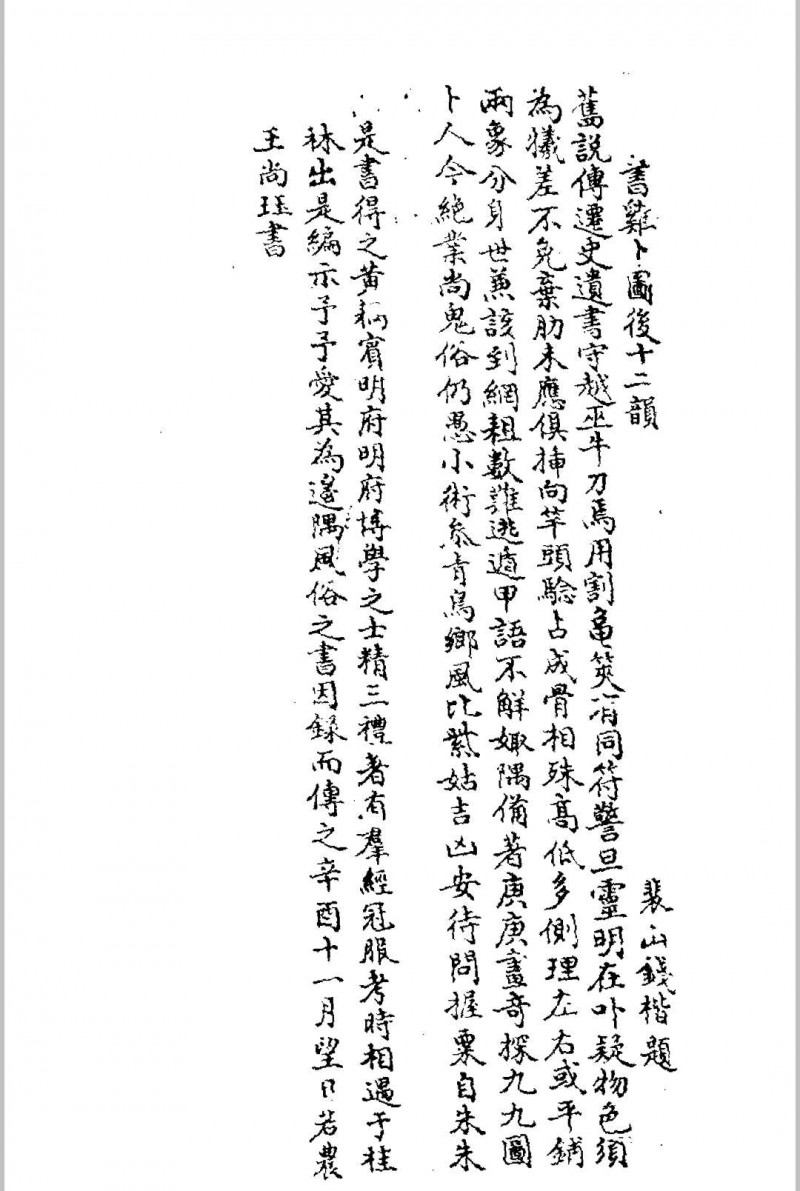 書雞卜圖後十二韻
裴山錢楷題
舊說傳遷史遺書守越巫牛刀焉用割龜筴冷同符警旦靈明在卟疑物色須
為犧差不免棄肋未應俱揷向竿頭驗占成骨相殊高低多側理左右或平鋪
兩象分身世兼該到網耝數難逃遁甲語不解娵隅備著庚庚畫奇探九九圖
卜人今絶業尚鬼俗仍愚小術叅青烏鄉風比紫姑吉凶安待問握粟自朱朱
是書得之黃賓明府明府博學之士精三禮著有羣經冠服考時相遇于桂
林出是編示予予愛其為邊隅風俗之書因錄而傳之辛酉十一月望日若農
王尚珏書